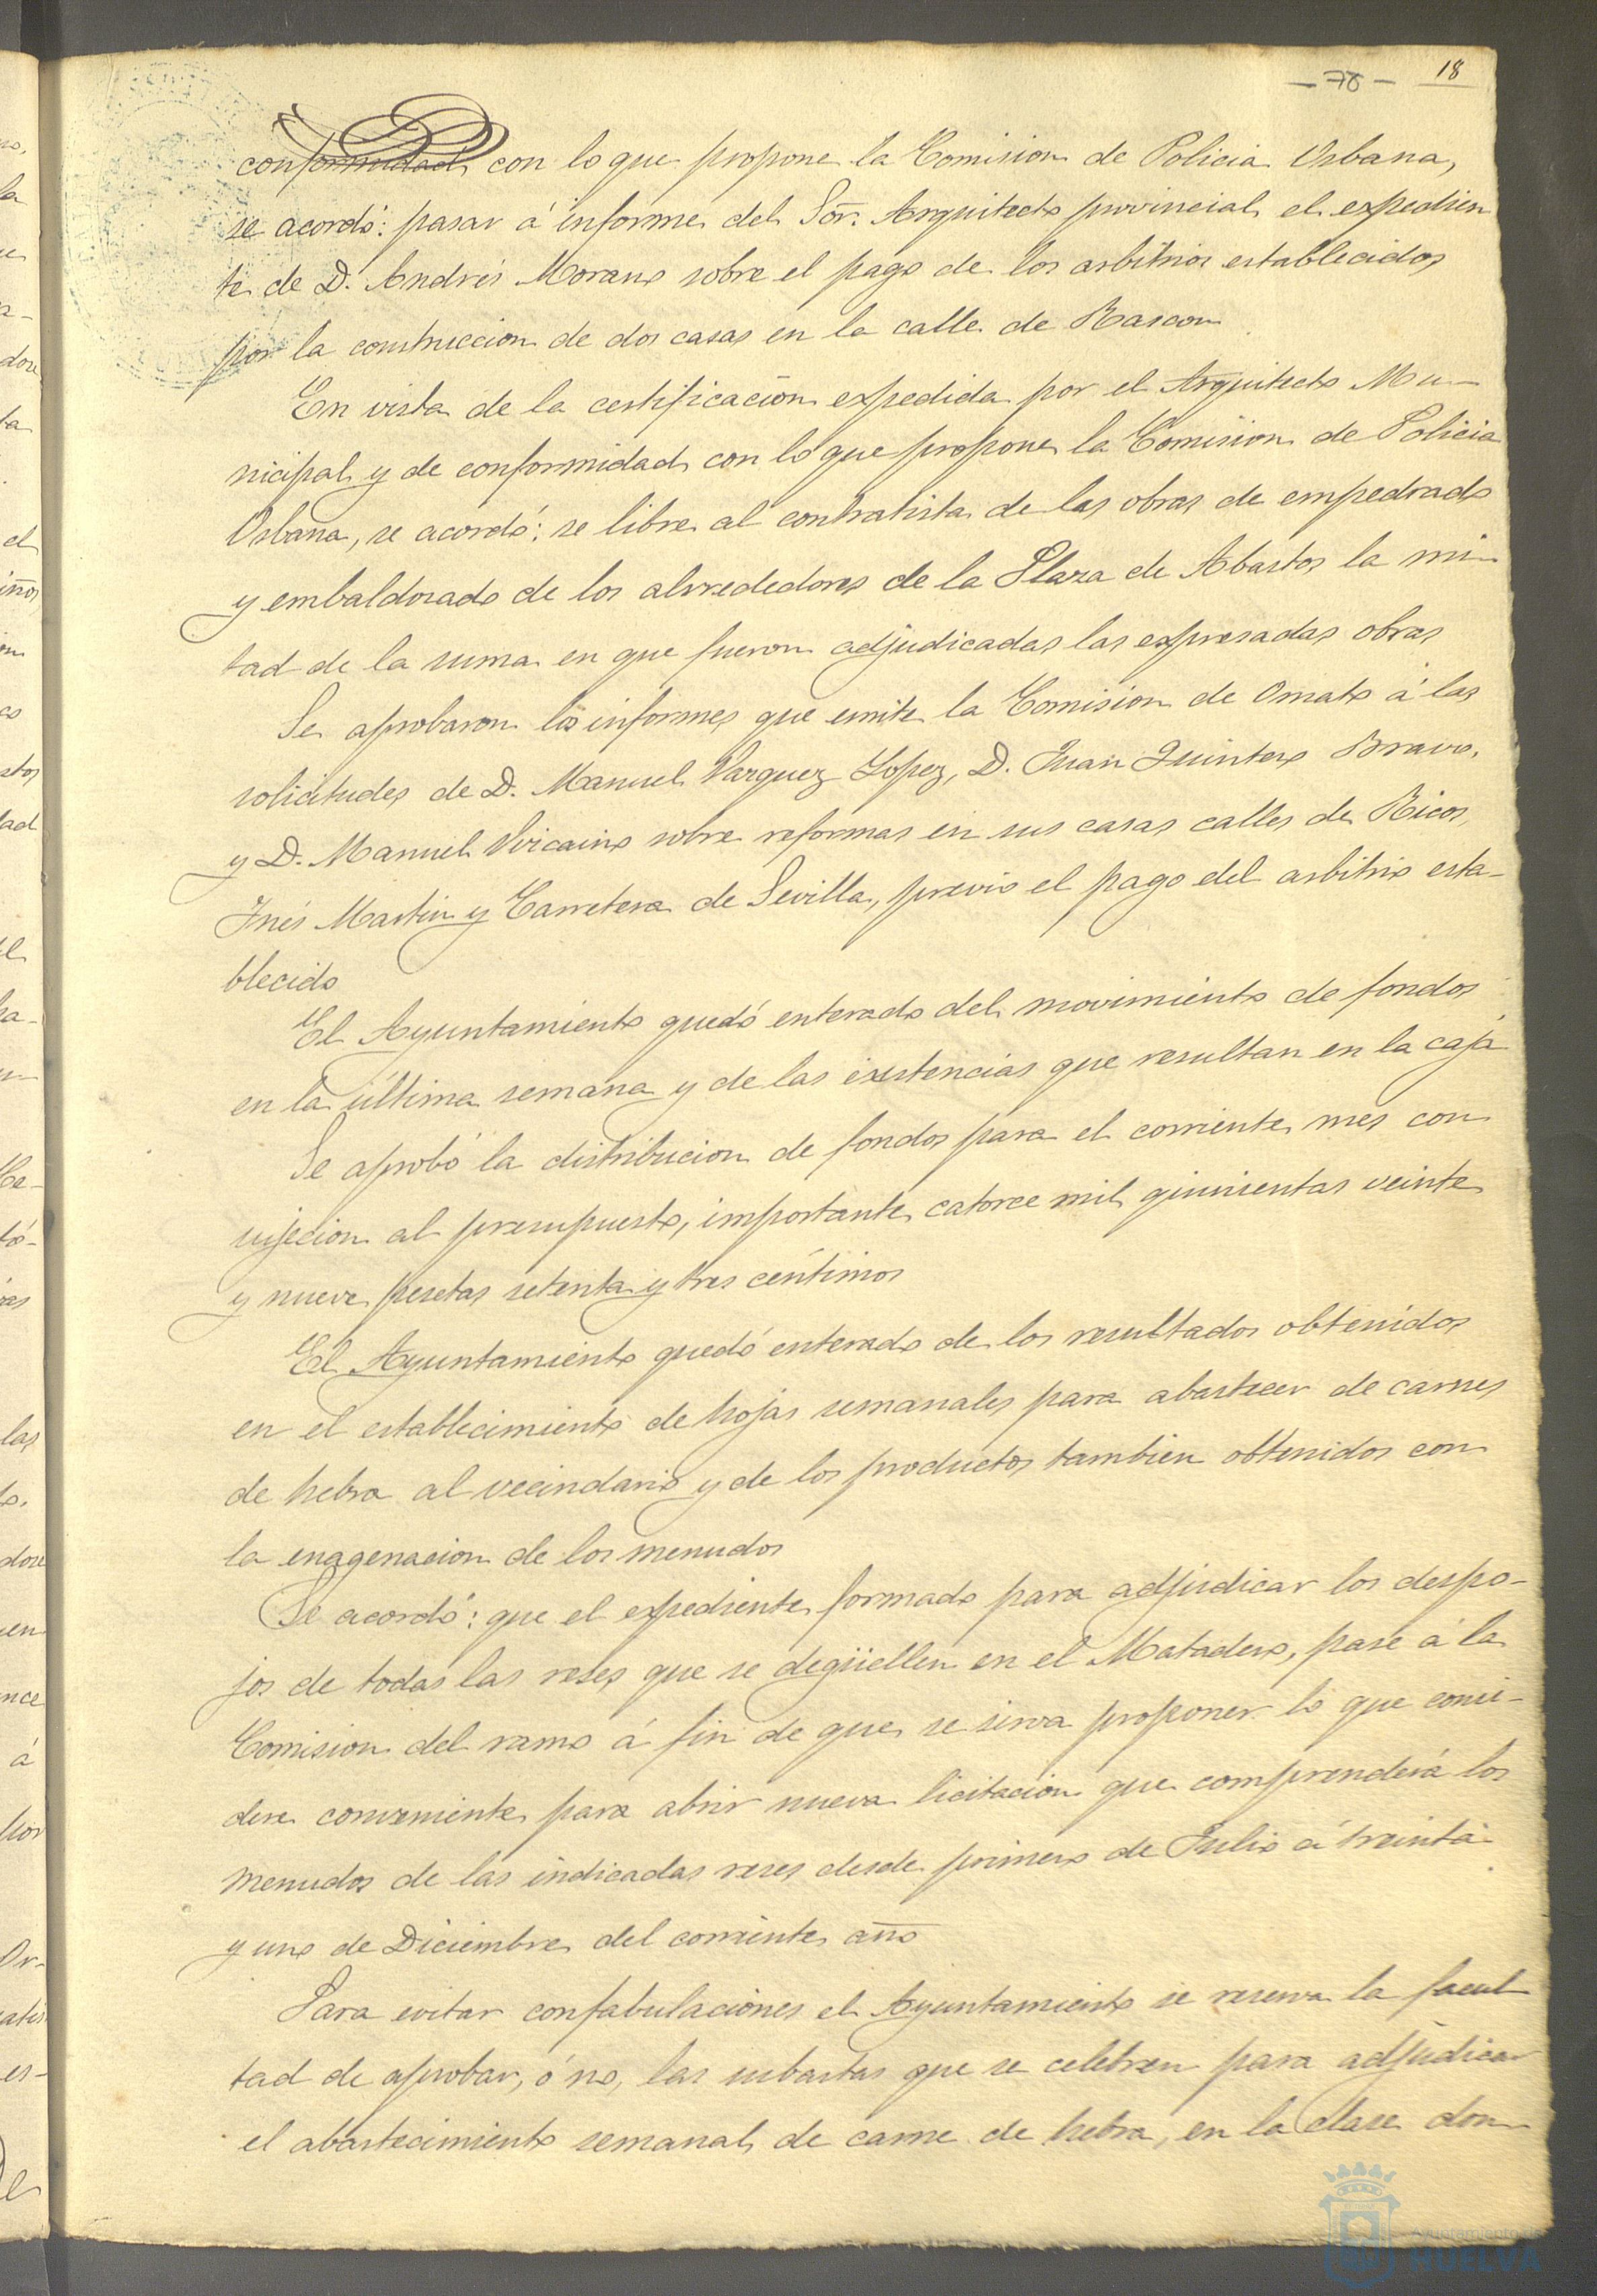 - 78 - 18
conformidad con lo que propone la Comision de Policia Urbana,
se acordó: pasar á informe del Sõr. Arquitecto provincial el expedien
te de D. Andrés Morano sobre el pago de los arbitrios establecidos
por la construccion de dos casas en la calle de Rascon
En vista de la certificación expedida por el Arquitecto Mu-
nicipal y de conformidad con lo que propone la Comision de Policia
Urbana, se acordó: se libre al contratista de las obras de empedrado
y embaldosado de los alrrededores de la Plaza de Abastos la mi-
tad de la suma en que fueron adjudicadas las expresadas obras
Se aprobaron los informes que emite la Comision de Ornato á las
solicitudes de D. Manuel Vazquez Lopez, D. Juan Quintero Bravo,
y D. Manuel Vizcaino sobre reformas en sus casas calles de Ricos,
Inés Martin y Carretera de Sevilla, previo el pago del arbitrio esta-
blecido
El Ayuntamiento quedó enterado del movimiento de fondos
en la última semana y de las existencias que resultan en la caja
Se aprobó la distribucion de fondos para el corriente mes con
sujecion al presupuesto, importante catorce mil quinientas veinte
y nueve pesetas setenta y tres céntimos
El Ayuntamiento quedó enterado de los resultados obtenidos
en el establecimiento de hojas semanales para abastecer de carnes
de hebra al vecindario y de los productos tambien obtenidos con
la enagenacion de los menudos
Se acordó: que el expediente formado para adjudicar los despo-
jos de todas las reses que se degüellen en el Matadero, pase á la
Comision del ramo á fin de que se sirva proponer lo que consi-
dere conveniente para abrir nueva licitacion que comprenderá los
menudos de las indicadas reses desde primero de Julio á treinta
y uno de Diciembre del corriente año
Para evitar confabulaciones el Ayuntamiento se reserva la facul
tad de aprobar, ó no, las subastas que se celebren para adjudicar
el abastecimiento semanal de carne de hebra, en la clase don
Ayuntamiento de
HUELVA